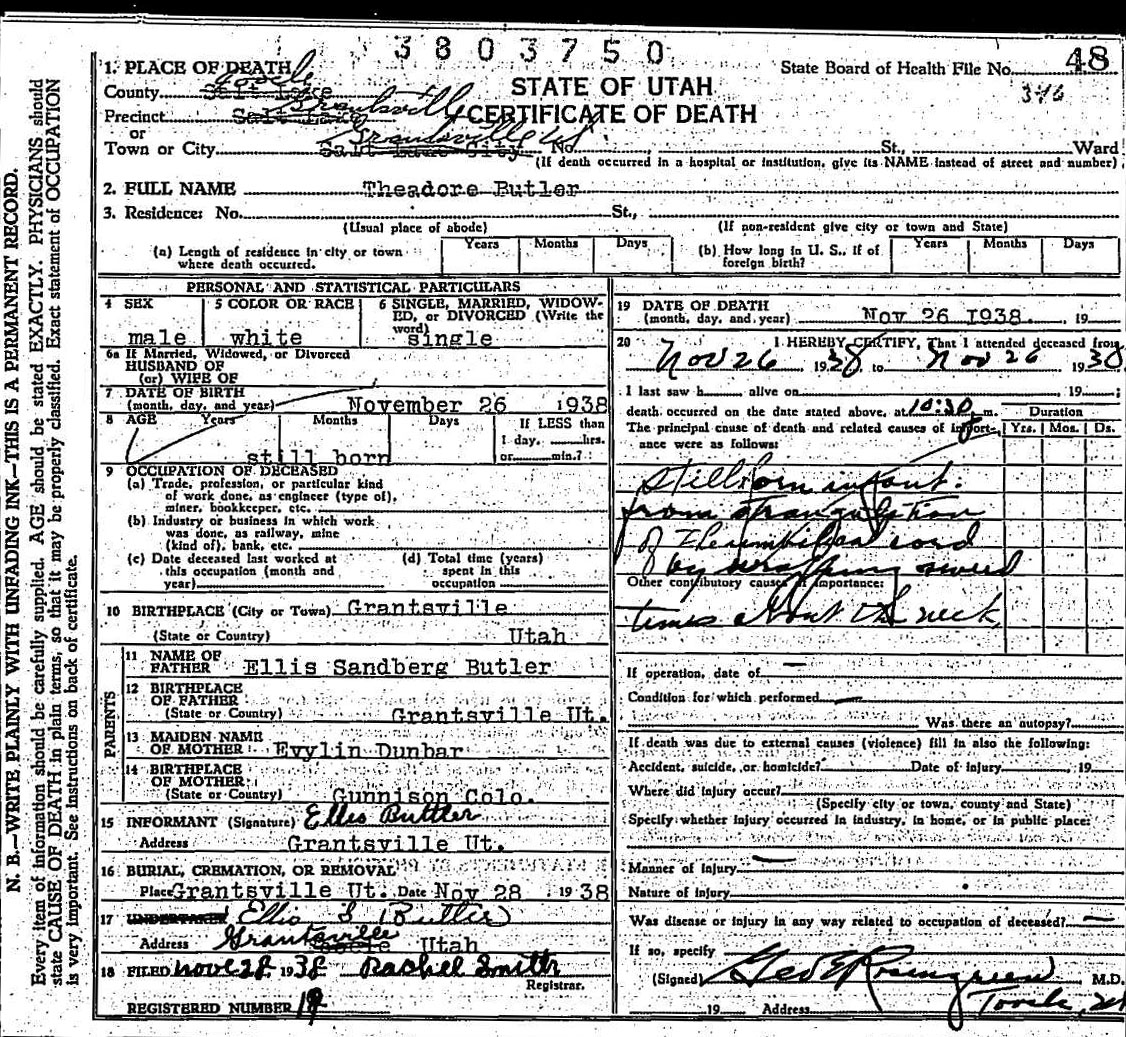 3803750
48
346
1. PLACE OF DEATH
State Board of Health File No.
Tooele
County Salt Lake
STATE OF UTAH
Grantsville
Precinct Salt Lake
CERTIFICATE OF DEATH
or
Grantsville Ut
Town or City Salt Lake City No. St., Ward
(If death occurred in a hospital or institution, give its NAME instead of street and number)
2. FULL NAME Theadore Butler
3. Residence: No. St.,
(Usual place of abode) (If non-resident give city or town and State)
(a) Length of residence in city or town where death occurred. Years Months Days
(b) How long in U. S., if of foreign birth? Years Months Days
PERSONAL AND STATISTICAL PARTICULARS
4 SEX 5 COLOR OR RACE 6 SINGLE, MARRIED, WIDOW-
ED, or DIVORCED (Write the
word)
male white single
6a If Married, Widowed, or Divorced
HUSBAND OF
(or) WIFE OF
7 DATE OF BIRTH
(month, day, and year) November 26 1938
8 AGE Years Months Days If LESS than
1 day, hrs.
or min.?
still born
9 OCCUPATION OF DECEASED
(a) Trade, profession, or particular kind
of work done, as engineer (type of),
miner, bookkeeper, etc.
(b) Industry or business in which work
was done, as railway, mine
(kind of), bank, etc.
(c) Date deceased last worked at
this occupation (month and
year)
(d) Total time (years)
spent in this
occupation
10 BIRTHPLACE (City or Town) Grantsville
(State or Country) Utah
PARENTS
11 NAME OF
FATHER Ellis Sandberg Butler
12 BIRTHPLACE
OF FATHER
(State or Country) Grantsville Ut.
13 MAIDEN NAME
OF MOTHER Evylin Dunbar
14 BIRTHPLACE
OF MOTHER
(State or Country) Gunnison Colo.
15 INFORMANT (Signature) Ellis Butler
Address Grantsville Ut.
16 BURIAL, CREMATION, OR REMOVAL
Place Grantsville Ut. Date Nov 28 1938
17 UNDERTAKER Ellis S Butler
Address Grantsville Utah
18 FILED Nov 28 1938 Rachel Smith
Registrar.
REGISTERED NUMBER
19 DATE OF DEATH
(month, day, and year) Nov 26 1938. 19
20 I HEREBY CERTIFY, That I attended deceased from
Nov 26 1938 to Nov 26 1938
I last saw h alive on 19 ;
death occurred on the date stated above, at 10:30 m.
The principal cause of death and related causes of import-
ance were as follows:
Duration
Yrs. Mos. Ds.
Stillborn infant.
from strangulation
of the umbilical cord
by wrapping several
Other contributory causes of importance:
times about the neck
If operation, date of
Condition for which performed
Was there an autopsy?
If death was due to external causes (violence) fill in also the following:
Accident, suicide, or homicide? Date of injury , 19
Where did injury occur?
(Specify city or town, county and State)
Specify whether injury occurred in industry, in home, or in public place:
Manner of injury
Nature of injury
Was disease or injury in any way related to occupation of deceased?
If so, specify
(Signed) Geo E Rosengreen M.D.
19 Address Tooele, Ut
N. B.—WRITE PLAINLY WITH UNFADING INK—THIS IS A PERMANENT RECORD.
Every item of information should be carefully supplied. AGE should be stated EXACTLY. PHYSICIANS should
state CAUSE OF DEATH in plain terms, so that it may be properly classified. Exact statement of OCCUPATION
is very important. See instructions on back of certificate.